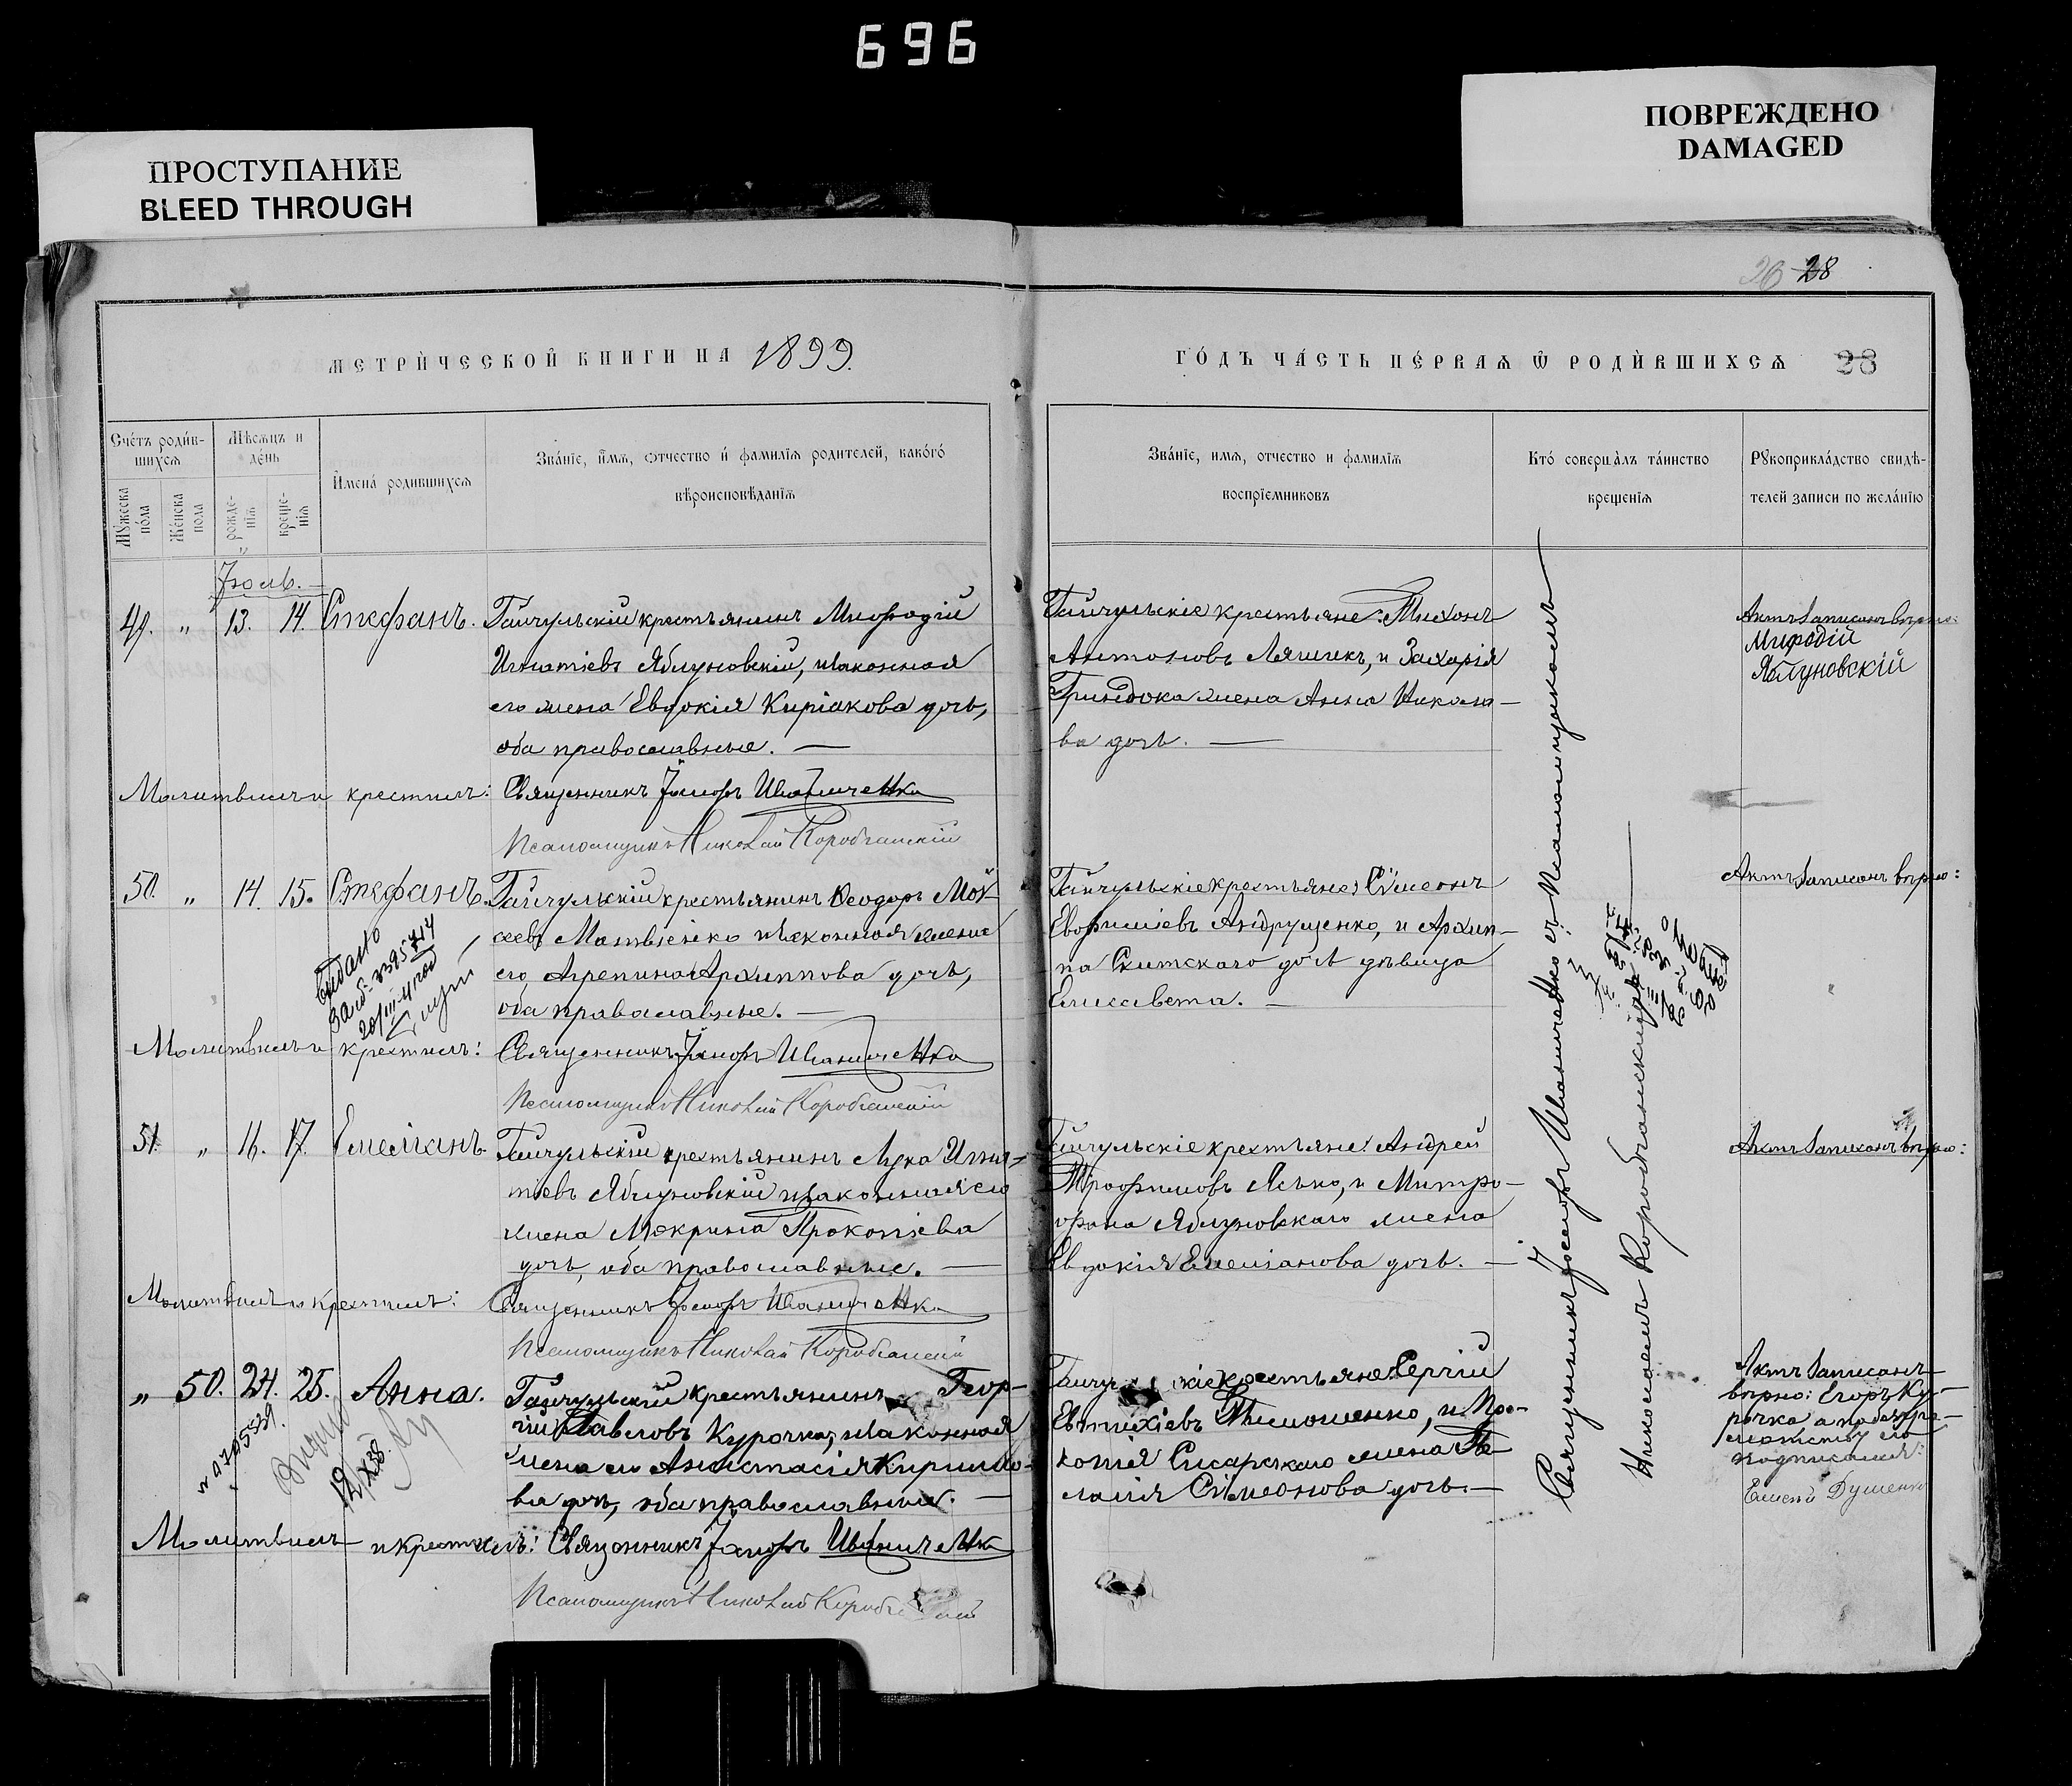 696
ПРОСТУПАНИЕ
BLEED THROUGH
ПОВРЕЖДЕНО
DAMAGED
26 28
МЕТРИ́ЧЕСКОЙ КНИГИ НА 1899.
ГО́ДЪ ЧА́СТЬ ПЕ́РВАѦ Ѿ РОДИ́ВШИХСѦ 28
Счетъ роди́в-
шихсѧ
Мѣсѧцъ и
де́нь
Мꙋжеска
по́ла
Же́нска
пола
рожде-
нїѧ
креще-
нїѧ
Имена́ родившихсѧ
Зва́нїе, имѧ, ѻтчество и фамилїѧ родителей, како́гѡ
вѣроисповѣданїѧ
Зва́нїе, имѧ, отчество и фамилїѧ
воспрїемниковъ
Кто́ соверша́лъ та́инство
крещенїѧ
Рꙋкоприкла́дство свидѣ-
телей записи по жела́нїю
Іюль.
49. „ 13. 14. Стефанъ.
Гайчульскій крестьянинъ Мефодій
Игнатіевъ Яблуновскій, и законная
его жена Евдокія Киріакова дочь,
оба православные. —
Гайчульскіе крестьяне: Тихонъ
Антоновъ Ляшикъ, и Захарія
жена Анна Никола-
ва дочь. —
Актъ записанъ вѣрно:
Мифодій
Яблуновскій
Молитвилъ и крестилъ: Священникъ Іосифъ Иваниченко
Псаломщикъ Николай Коробчанскій
50. „ 14. 15. Стефанъ.
Гайчульскій крестьянинъ Ѳеодоръ Мой-
сеевъ Матвіенко и законная жена
его, Агрепина Архиппова дочь,
оба православные. —
Гайчульскіе крестьяне: Сѵмеонъ
Евфиміевъ Андрущенко, и Архип-
па Скитскаго дочь дѣвица
Елисавета. —
Актъ записанъ вѣрно:
Видано
Молитвилъ и крестилъ: Священникъ Іосифъ Иваниченко
Псаломщикъ Николай Коробчанскій
51. „ 16. 17. Емеліанъ.
Гайчульскій крестьянинъ Лука Игна-
тіевъ Яблуновскій и законная его
жена Макрина Прокопіева
дочь, оба православные. —
Гайчульскіе крестьяне: Андрей
Трофимовъ Ясько, и Митро-
фана Яблуновскаго жена
Евдокія Емеліанова дочь. —
Актъ записанъ вѣрно:
Молитвилъ и крестилъ: Священникъ Іосифъ Иваниченко
Псаломщикъ Николай Коробчанскій
„ 50. 24. 25. Анна.
Гайчульскій крестьянинъ Геор-
гій Павловъ Курочка, и законная
жена его Анастасія Кирилло-
ва дочь, оба православные. —
Евтихіевъ Тимошенко, и Про-
копія жена Пе-
лагія Сѵмеонова дочь. —
Актъ записанъ
вѣрно: Егоръ Ку-
рочка а по безгра-
мотству его
подписался:
Душенко
Молитвилъ и крестилъ: Священникъ Іосифъ Иваниченко
Псаломщикъ Николай
Священникъ Іосифъ Иваниченко съ Псаломщикомъ
Николаемъ Коробчанскимъ